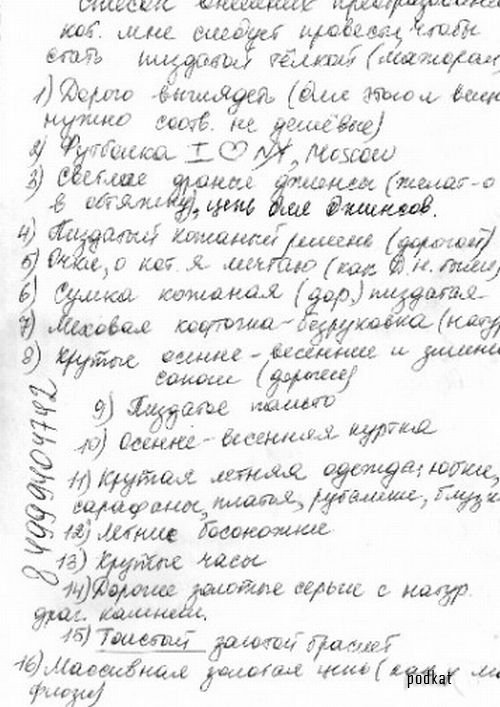 Список внешних преобразован
кот. мне следует провести, чтобы
стать пиздатой тёлкой (мажоркой
1) Дорого выглядеть (для этого вещи
нужно соотв. не дешёвые)
2) Футболка I ♡ NY, Moscow
3) Светлые драные джинсы (желат-о
в обтяжку), цепь для джинсов.
4) Пиздатый кожаный ремень (дорогой)
5) Очки, о кот. я мечтаю (как
6) Сумка кожаная (дор.) пиздатая
7) Меховая кофточка-безрукавка (нату
8) Крутые осенне-весенние и зимни
сапоги (дорогие)
9) Пиздатое пальто
10) Осенне-весенняя куртка
11) Крутая летняя одежда: юбки,
сарафаны, платья, рубашки, блузк
12) Летние босоножки
13) Крутые часы
14) Дорогие золотые серьги с натур.
драг. камнем.
15) Толстый золотой браслет
16) Массивная золотая цепь (как у
8 4999404742
podkat